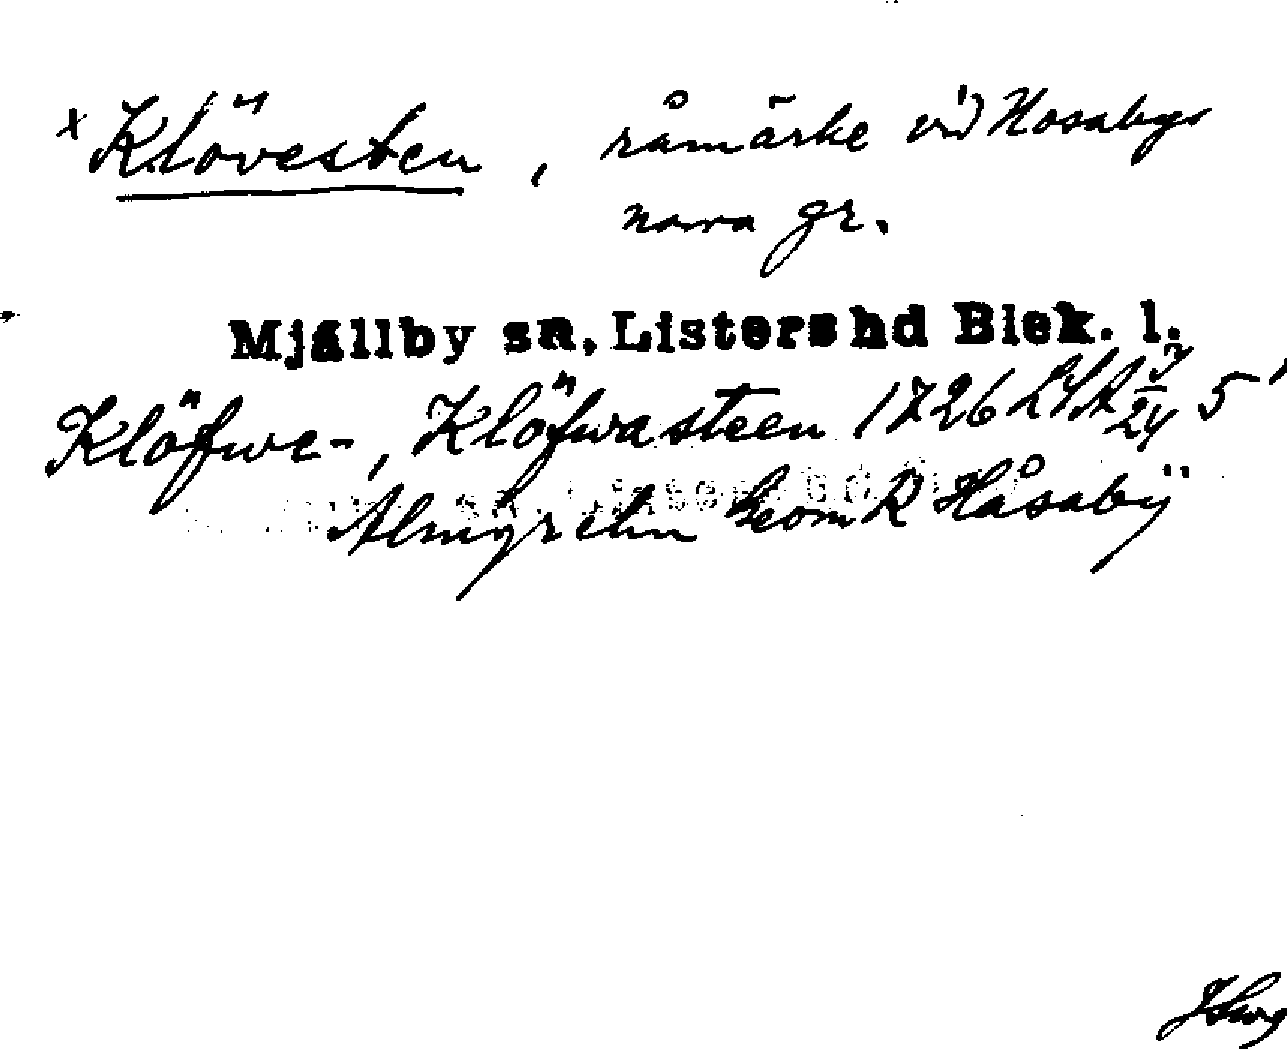 x Klövesten, råmärke vid Hosabys
norra gr.
Mjällby sn, Listers hd Blek. l.
Klöfwe-, Klöfwasteen 1726 LSA J/24 5'
Almgrehn Geom R Håsabÿ